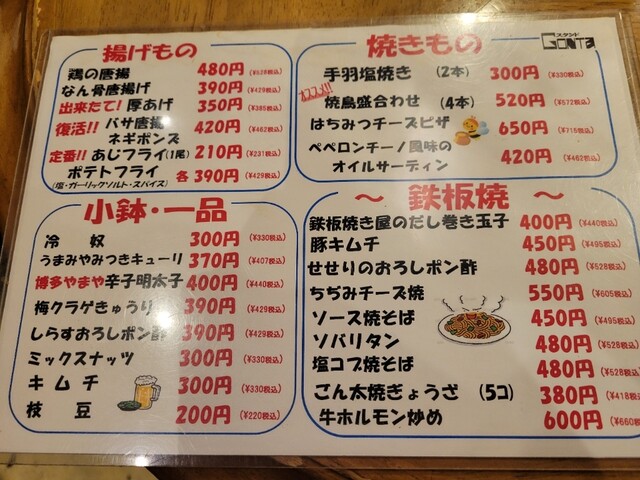 揚げもの
鶏の唐揚 480円 (¥528税込)
なん骨唐揚げ 390円 (¥429税込)
出来たて！厚あげ 350円 (¥385税込)
復活!! バサ唐揚 ネギポンズ 420円 (¥462税込)
定番!! あじフライ(1尾) 210円 (¥231税込)
ポテトフライ 各390円 (¥429税込)
(塩・ガーリックソルト・スパイス)
小鉢・一品
冷奴 300円 (¥330税込)
うまみやみつきキューリ 370円 (¥407税込)
博多やまや辛子明太子 400円 (¥440税込)
梅クラゲきゅうり 390円 (¥429税込)
しらすおろしポン酢 390円 (¥429税込)
ミックスナッツ 300円 (¥330税込)
キムチ 300円 (¥330税込)
枝豆 200円 (¥220税込)
スタンド GONTa
焼きもの
手羽塩焼き (2本) 300円 (¥330税込)
オススメ!!
焼鳥盛合わせ (4本) 520円 (¥572税込)
はちみつチーズピザ 650円 (¥715税込)
ペペロンチーノ風味の
オイルサーディン 420円 (¥462税込)
～ 鉄板焼 ～
鉄板焼き屋のだし巻き玉子 400円 (¥440税込)
豚キムチ 450円 (¥495税込)
せせりのおろしポン酢 480円 (¥528税込)
ちぢみチーズ焼 550円 (¥605税込)
ソース焼そば 450円 (¥495税込)
ソバリタン 480円 (¥528税込)
塩コブ焼そば 480円 (¥528税込)
ごん太焼ぎょうざ (5コ) 380円 (¥418税込)
牛ホルモン炒め 600円 (¥660税込)